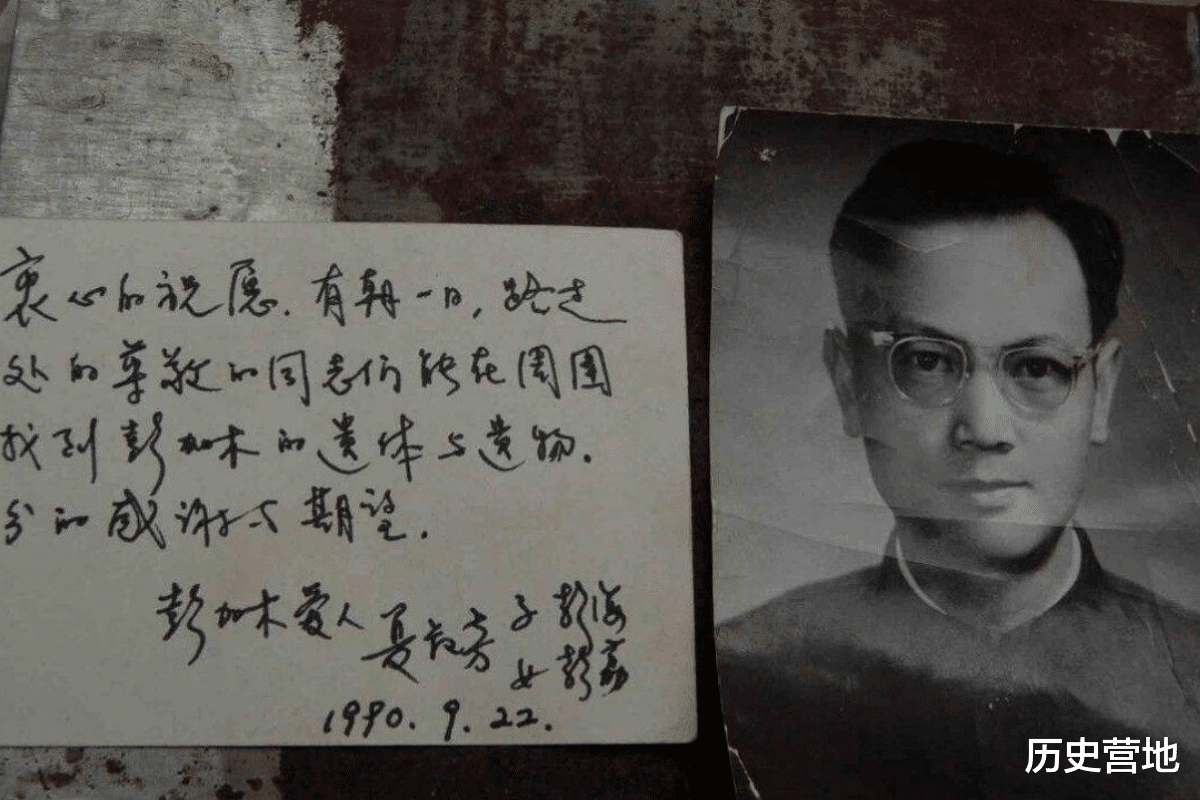 衷心的祝愿.有朝一日,路过
处的尊敬的同志们能在周围
找到彭加木的遗体与遗物.
分的感谢与期望.
彭加木爱人 夏叔芳 子 彭海
女 彭荔
1990.9.22.
历史营地